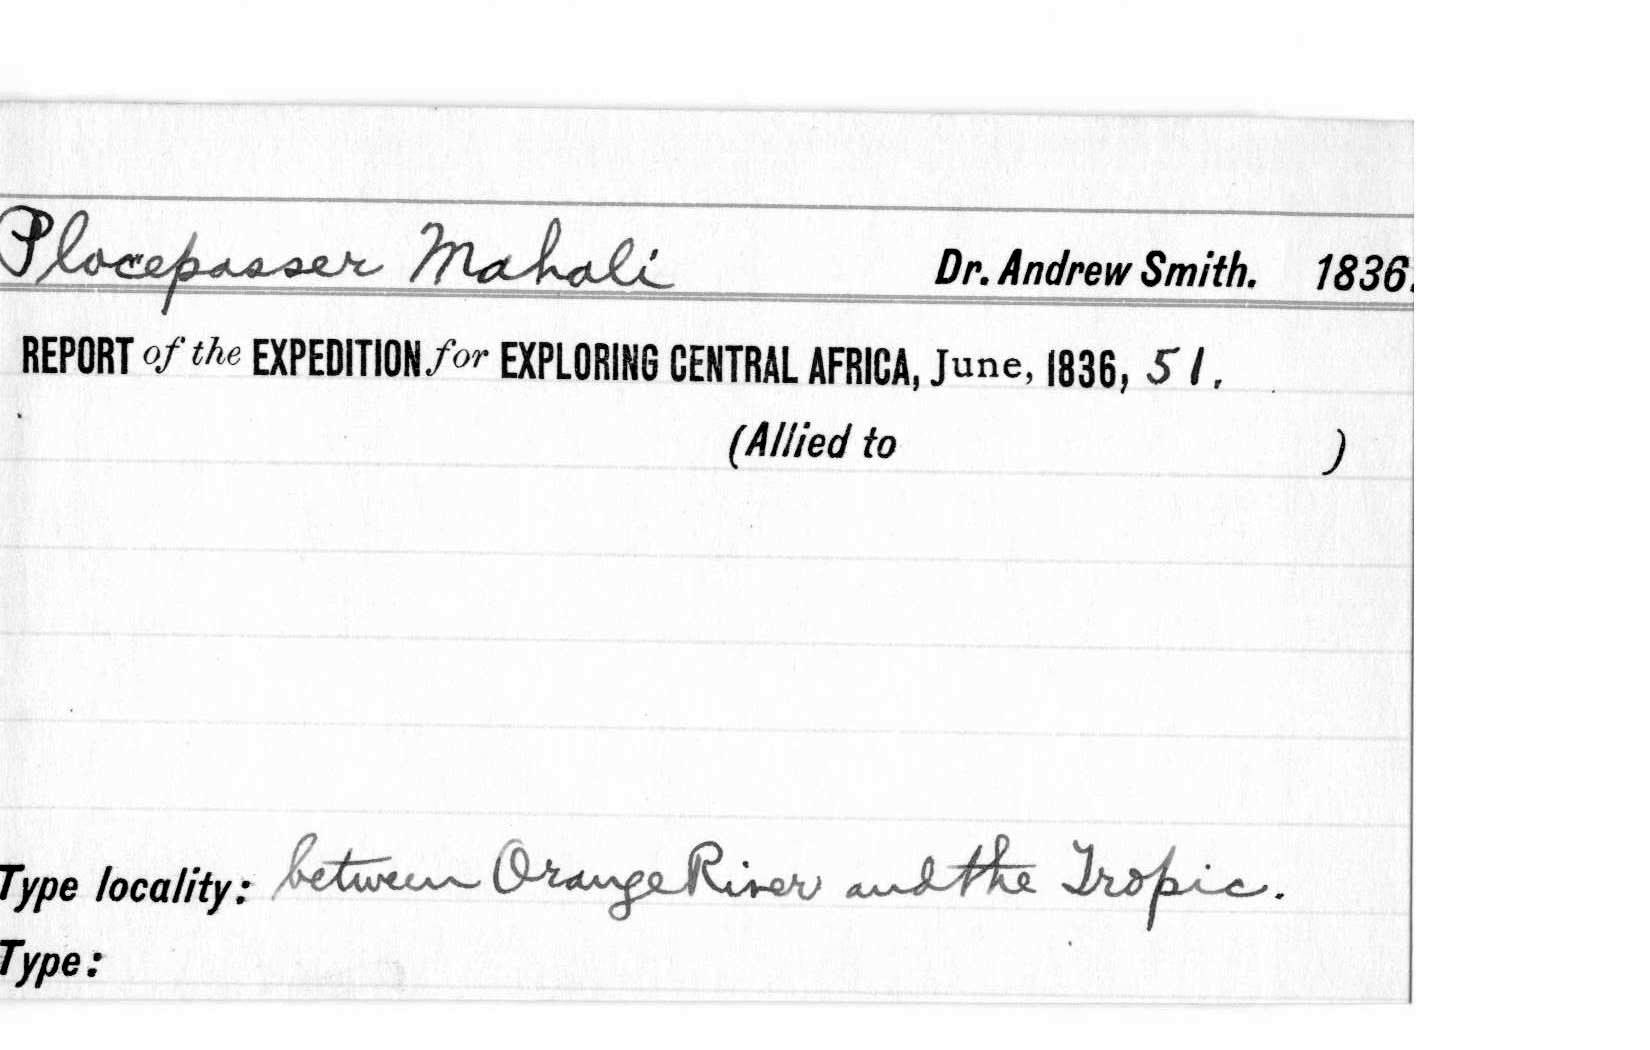 Plocepasser Mahali Dr. Andrew Smith. 1836.
REPORT of the EXPEDITION for EXPLORING CENTRAL AFRICA, June, 1836, 51.
(Allied to )
Type locality: between Orange River and the Tropic.
Type: